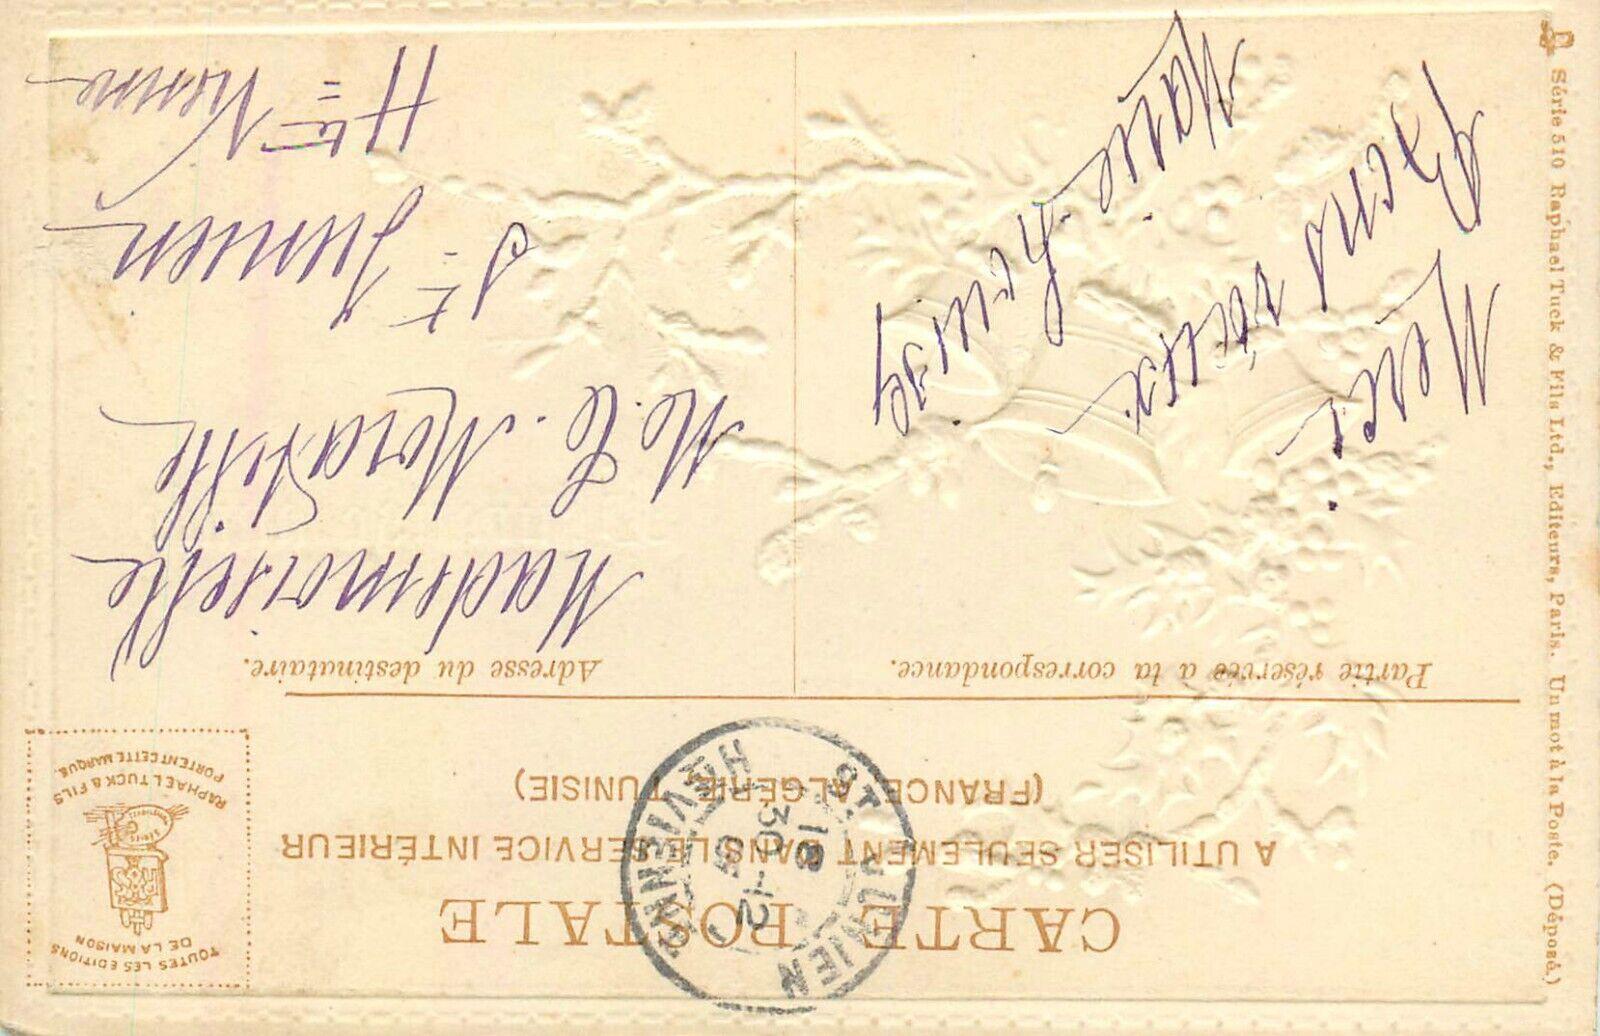 CARTE POSTALE
A UTILISER SEULEMENT DANS LE SERVICE INTÉRIEUR
(FRANCE, ALGÉRIE, TUNISIE)
Partie réservée à la correspondance.
Adresse du destinataire.
TOUTES LES EDITIONS
DE LA MAISON
RAPHAEL TUCK & FILS
PORTENT CETTE MARQUE.
ST JUNIEN
HTE VIENNE
18
30 -12
Merci
vœux
Marie
Mademoiselle
M. L.
St Junien
Hte Vienne
Série 510 Raphael Tuck & Fils Ltd., Editeurs, Paris. Un mot à la Poste. (Déposé.)